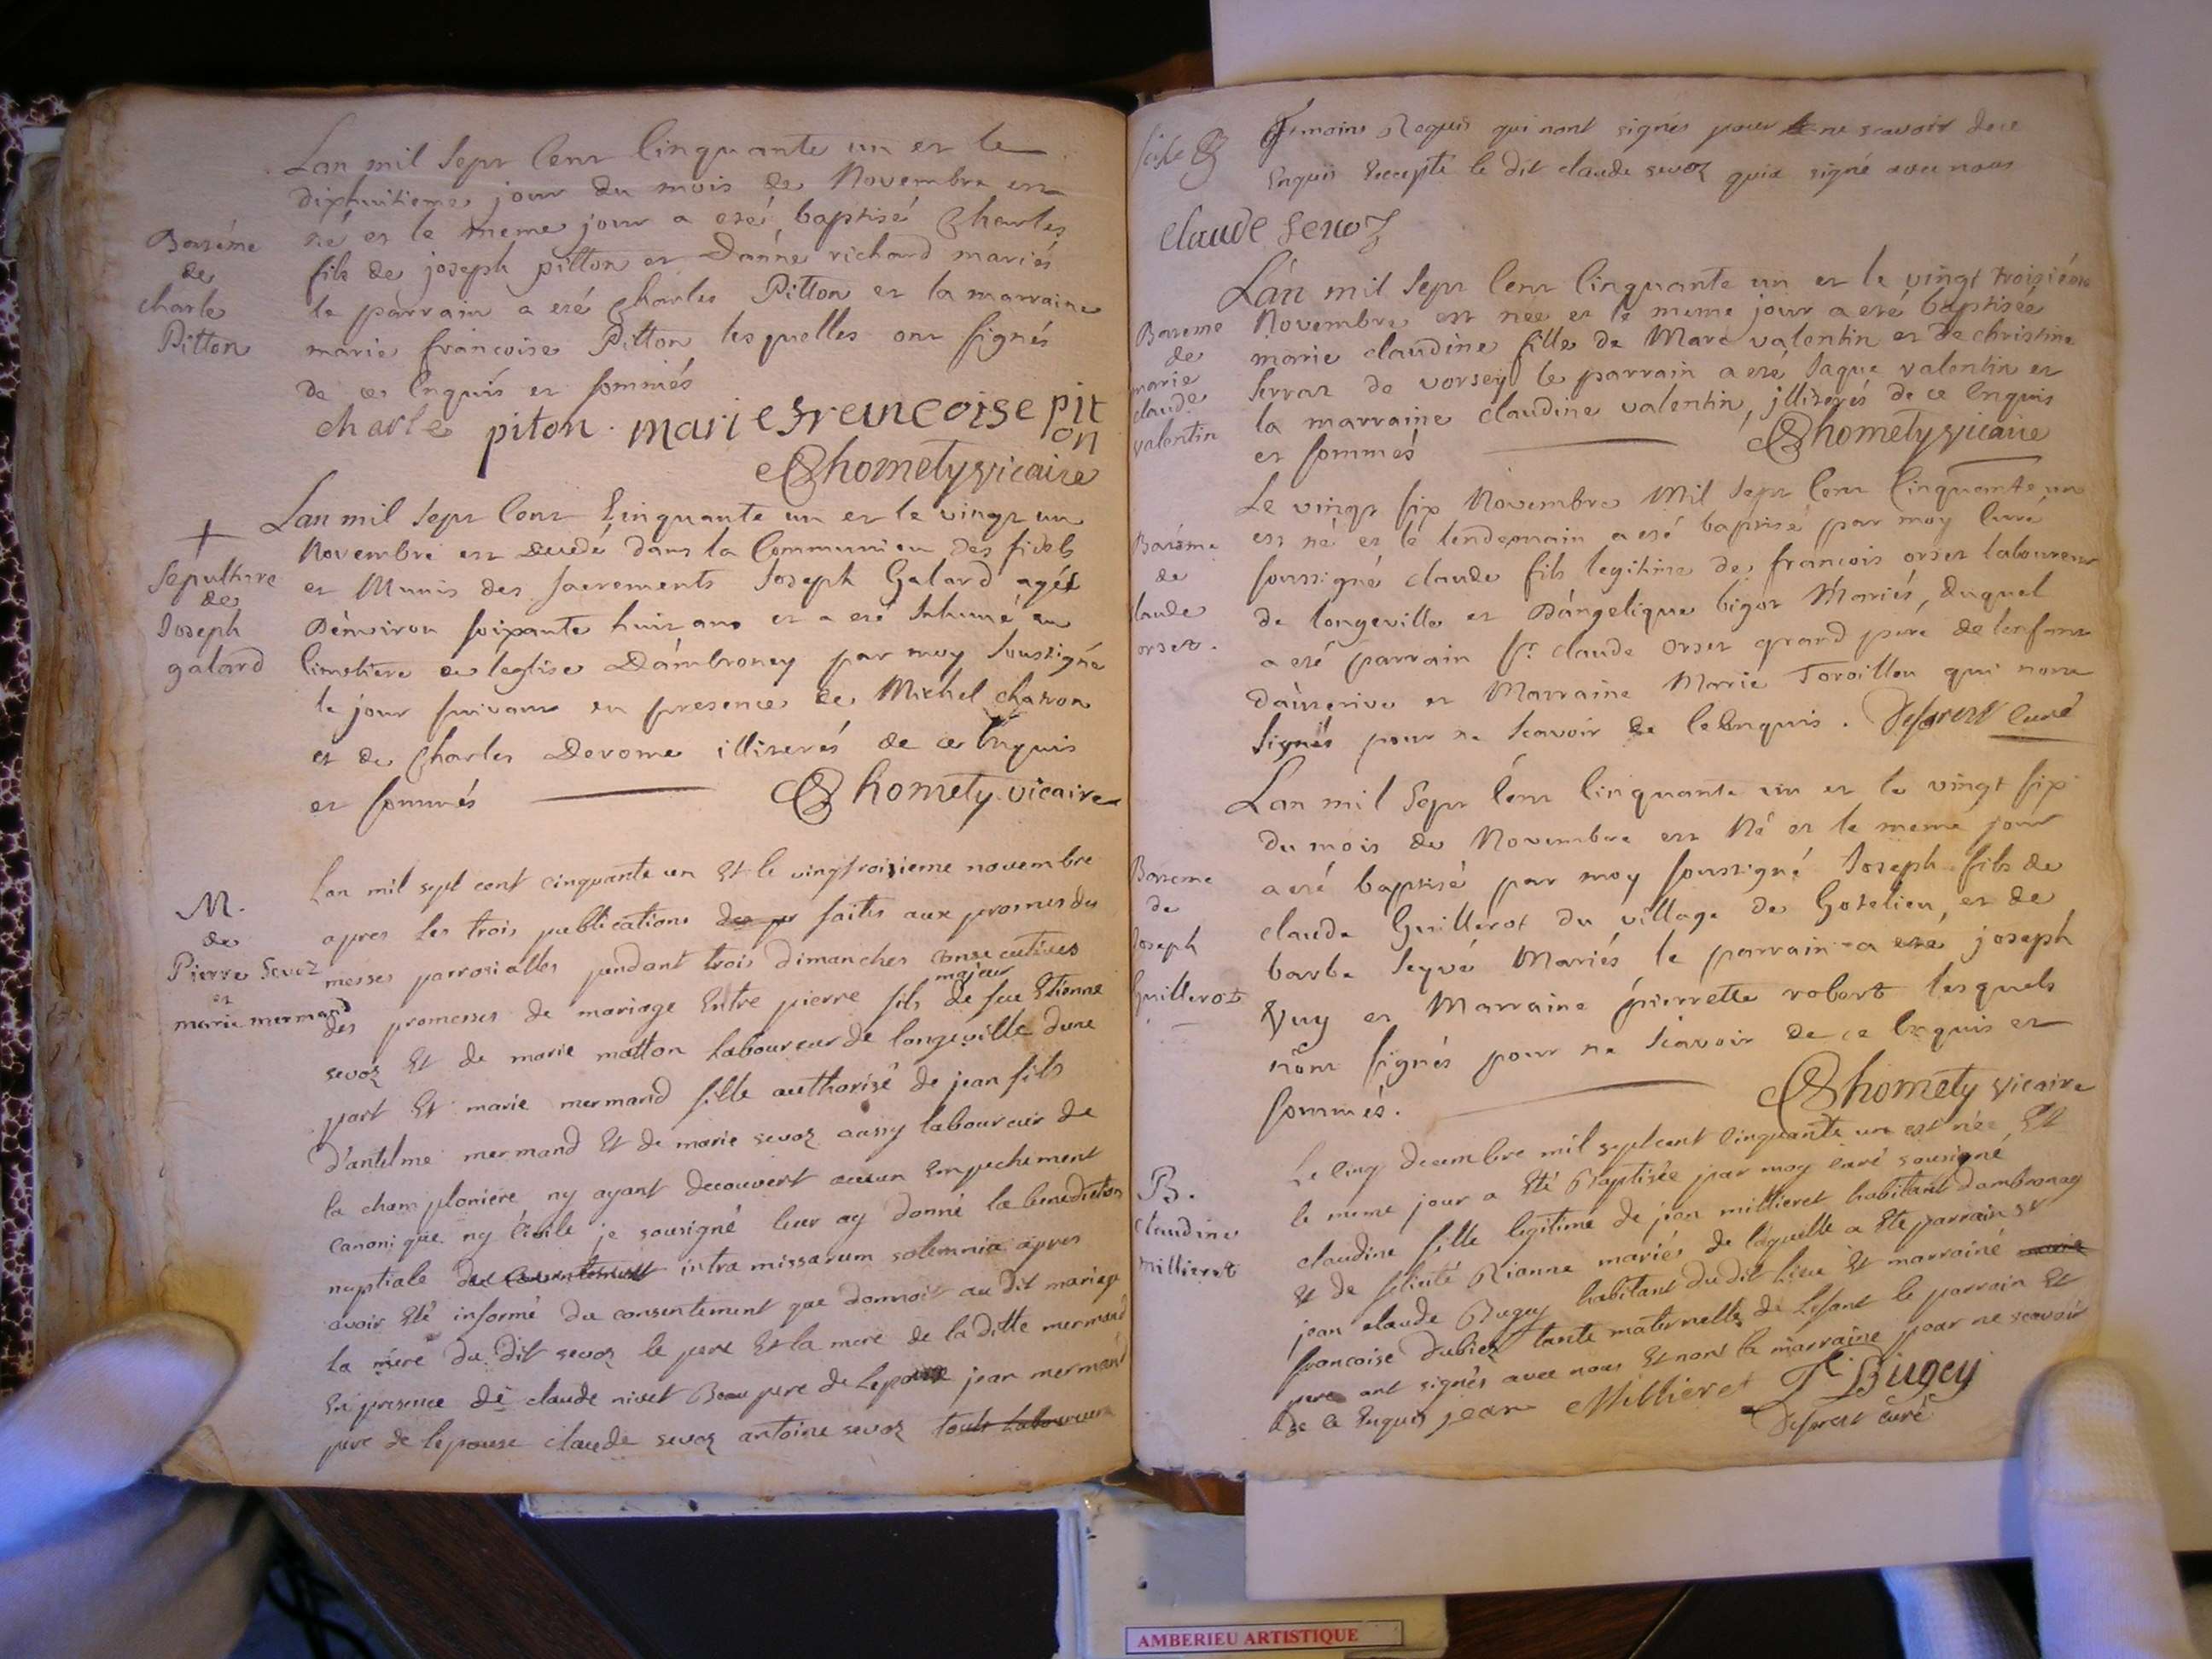 Lan mil sept cent cinquante un et le
dixhuitieme jour du mois de Novembre est
né et le meme jour a eté baptisé Charles
fils de joseph pitton et Danne richard mariés
le parrain a eté Charles Pitton et la marraine
marie francoise Pitton lesquelles ont signés
de ce Enquis et sommés
Bateme
de
charle
Pitton
charle piton. marie freincoise pit
on
Chomety vicaire
Lan mil sept cent Cinquante un et le vingt un
Novembre est decedé dans la Communion des fidels
et Munis des sacrements Joseph Galard agés
Denviron soixante huit ans et a eté Inhumé au
cimetiere de leglise Dambroney par moy soussigné
le jour suivant en presence de Michel charon
et de Charles Derome illiterés de ce Enquis
et sommés
Chomety vicaire
+
Sepulture
de
Joseph
galard
Lan mil sept cent cinquante un Et le vingtroisieme novembre
apres les trois publications faites aux prosnes des
messes parrosialles pendant trois dimanches consecutives
majeur
des promesses de mariage Entre pierre fils de feu Etienne
sevoz Et de marie matton laboureur de longeville dune
part Et marie mermand fille authorisé de jean fils
d'antelme mermand Et de marie sevoz aussy laboureur de
la champloniere ny ayant decouvert aucun Empechement
canonique ny Civile je sousigné leur ay donné la benediction
nuptiale intra missarum solemnia apres
avoir Eté informé du consentement que donnoit au dit mariage
la mere du dit sevoz le pere Et la mere de la ditte mermand
En presence de claude nivet Beau pere de Lepouse jean mermand
pere de lepouse claude sevoz antoine sevoz touts laboureurs
M.
de
Pierre Sevoz
et
marie mermand
Temoins Requis qui nont signés pour ne scavoir de ce
Enquis Excepté le dit claude sevoz qui a signé avec nous
Claude Sevoz
Lan mil sept cent cinquante un et le vingt troisiéme
Novembre est née et le meme jour a eté baptisée
marie claudine fille de Marc valentin et de christine
ferrat de vorsey le parrain a eté Jaque valentin et
la marraine claudine valentin, illiterés de ce Enquis
et sommés
Chomety vicaire
Bateme
de
marie
claude
valentin
Le vingt six Novembre Mil sept cent Cinquante un
est né et le lendemain a eté baptisé par moy curé
soussigné claude fils legitime de francois orset laboureur
de longeville et Dangelique bigot Mariés, duquel
a eté parrain sr. claude Orset grand pere de lenfant
dauterive et Marraine Marie Toroillon qui nont
signés pour ne scavoir de ce Enquis. curé
Bateme
de
claude
orset.
Lan mil sept cent cinquante un et le vingt six
du mois de Novembre est Né et le meme jour
a eté baptisé par moy soussigné Joseph fils de
claude Guillerot du village de Gotelieu, et de
barbe seyvé Mariés le parrain a eté joseph
Vuy et Marraine pierrette robert lesquels
nont signés pour ne scavoir de ce Enquis et
sommés.
Chomety vicaire
Bateme
de
Joseph
Guillerot
Le cinq decembre mil septcent Cinquante un est née Et
le meme jour a Eté Baptisée par moy curé sousigné
claudine fille legitime de jean millieret habitant dambronay
Et de felicité Rionne mariés de laquelle a Ete parrain sr
jean claude Bugey habitant du dit lieu Et marraine marie
francoise dubiez tante maternelle de Lefant le parrain Et
pere ont signés avec nous Et non la marraine pour ne scavoir
de ce Enquis jean Millieret Bugey
curé
B.
Claudine
Millieret
AMBERIEU ARTISTIQUE